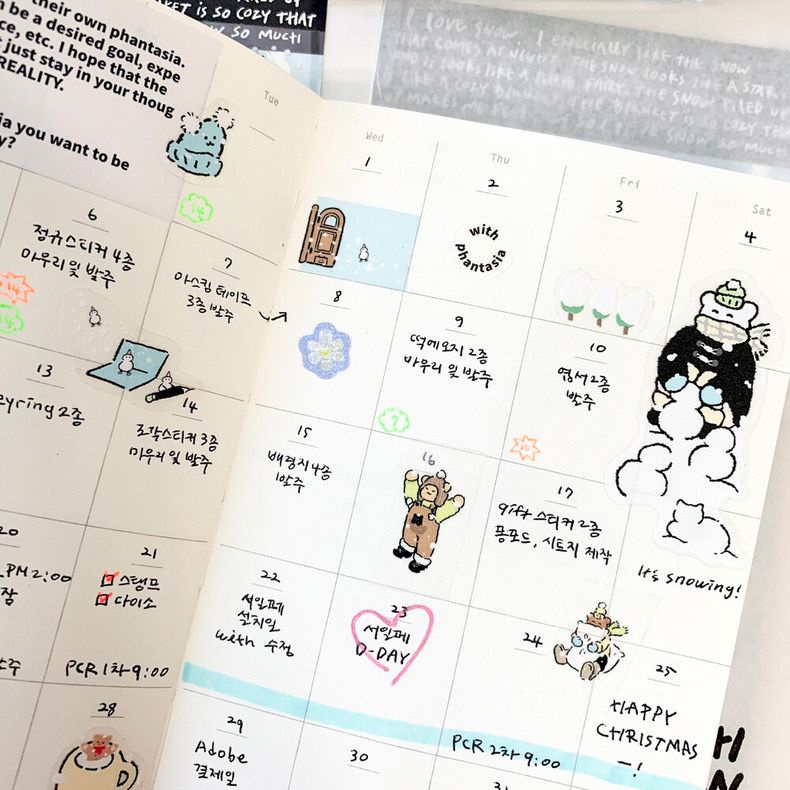 KET IS SO COZY THAT
SO MUCH
I LOVE SNOW. I ESPECIALLY LIKE THE SNOW
THAT COMES AT NIGHT. THE SNOW LOOKS LIKE A STAR
their own phantasia.
be a desired goal, expe
ce, etc. I hope that the
just stay in your thoug
REALITY.
ia you want to be
y?
Tue
Wed
Thu
Fri
Sat
1
2
with
phantasia
3
4
14
6
정규스티커 4종
마우리 및 발주
14
7
마스킹 테이프
3종 발주
8
9
떡메모지 2종
마우리 및 발주
7
10
엽서 2종
발주
10
13
eyring 2종
14
조각스티커 3종
마우리 및 발주
15
배경지 4종
발주
16
17
gift 스티커 2종
폼포드, 시트지 제작
It's snowing!
20
PM 2:00
21
스탬프
다이소
PCR 1차 9:00
22
서일페
설치일
with 수정
23
서일페
D-DAY
24
PCR 2차 9:00
25
HAPPY
CHRISTMAS
-!
28
D
29
Adobe
결제일
30
31